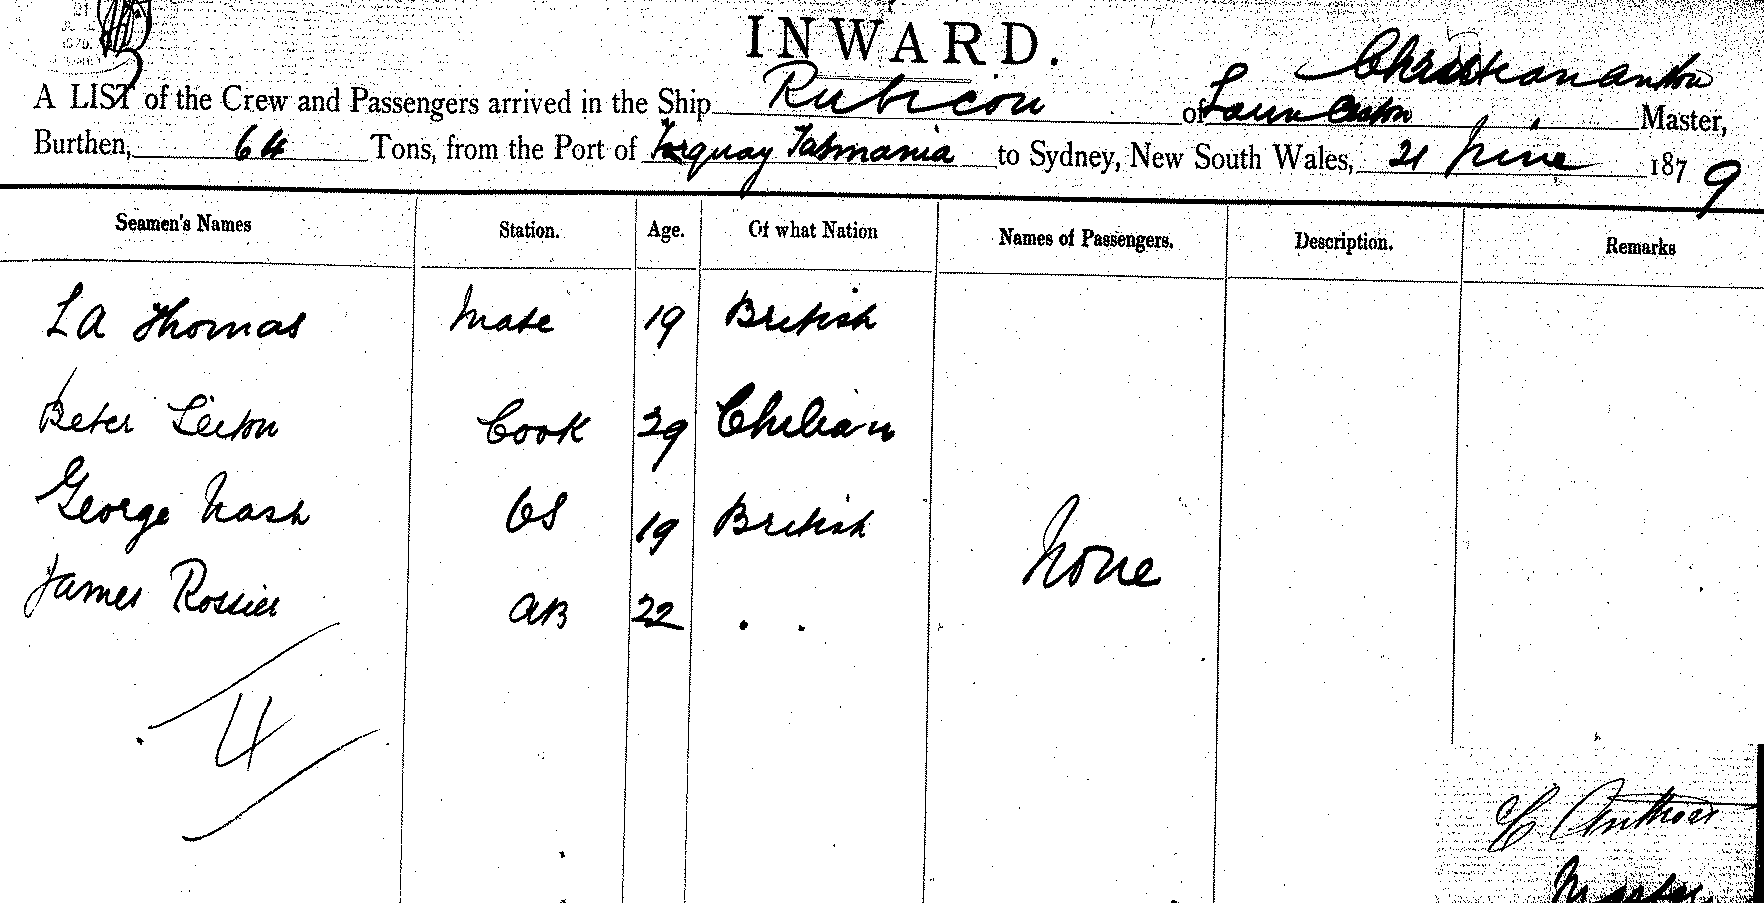 INWARD.
A LIST of the Crew and Passengers arrived in the Ship Rubicon of Launceston Christian Master,
Burthen, 64 Tons, from the Port of Torquay Tasmania to Sydney, New South Wales, 21 June 1879
Seamen's Names Station. Age. Of what Nation Names of Passengers. Description. Remarks
L A Thomas Mate 19 British
Peter Cook 29 Chilian
George Nash OS 19 British
None
James Rossier AB 22 . .
4
C
Master